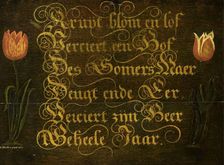 Kruyt blom en lof
Verciert een Hof
Des Somers Maer
Deugt ende Eer
Verciert zijn Heer
Geheele Jaar.